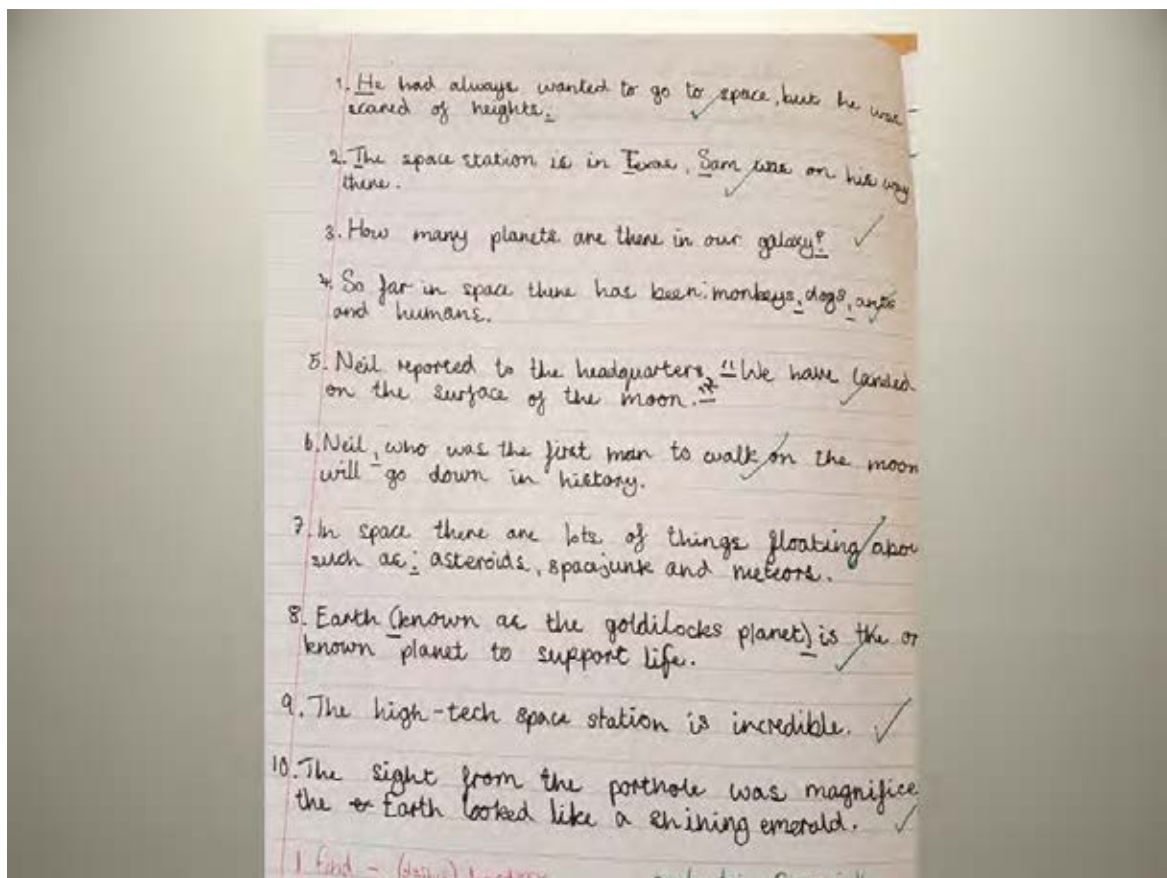 1. He had always wanted to go to space, but he was
scared of heights.
2. The space station is in Texas. Sam was on his way
there.
3. How many planets are there in our galaxy?
4. So far in space there has been: monkeys, dogs, ants
and humans.
5. Neil reported to the headquarters, "We have landed
on the surface of the moon."
6. Neil, who was the first man to walk on the moon
will go down in history.
7. In space there are lots of things floating abou
such as: asteroids, spacejunk and meteors.
8. Earth (known as the goldilocks planet) is the on
known planet to support life.
9. The high-tech space station is incredible.
10. The sight from the porthole was magnifice
the Earth looked like a shining emerald.
1 Find -